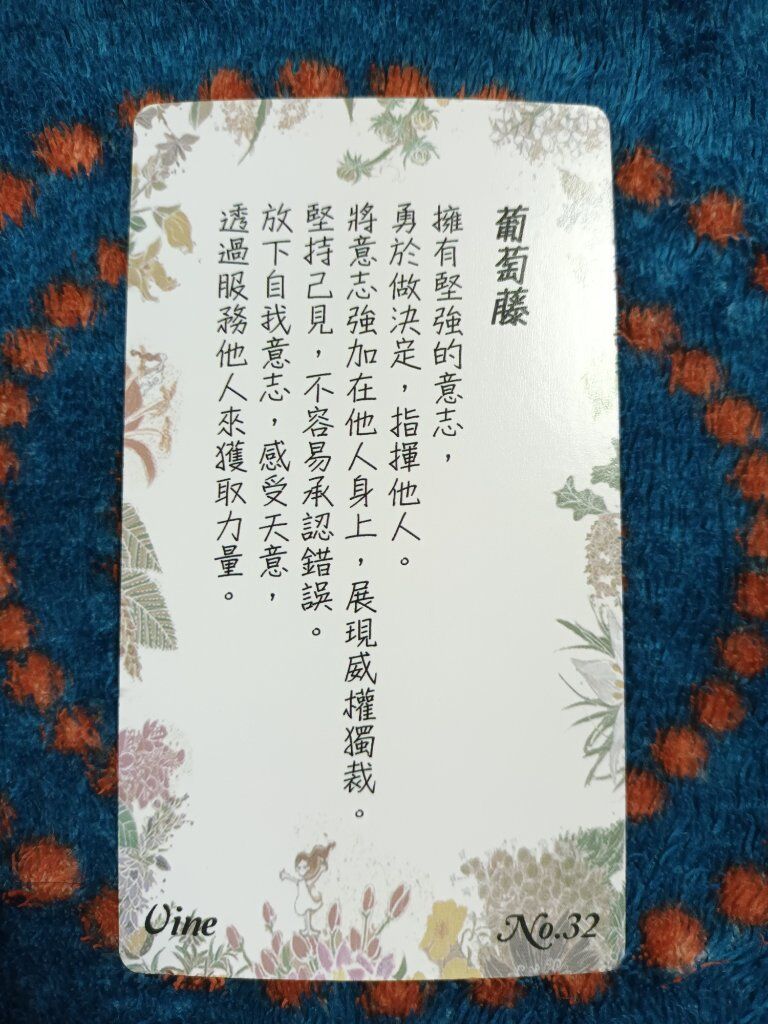 葡萄藤
擁有堅強的意志，
勇於做決定，指揮他人。
將意志強加在他人身上，展現威權獨裁。
堅持己見，不容易承認錯誤。
放下自我意志，感受天意，
透過服務他人來獲取力量。
Vine
No.32